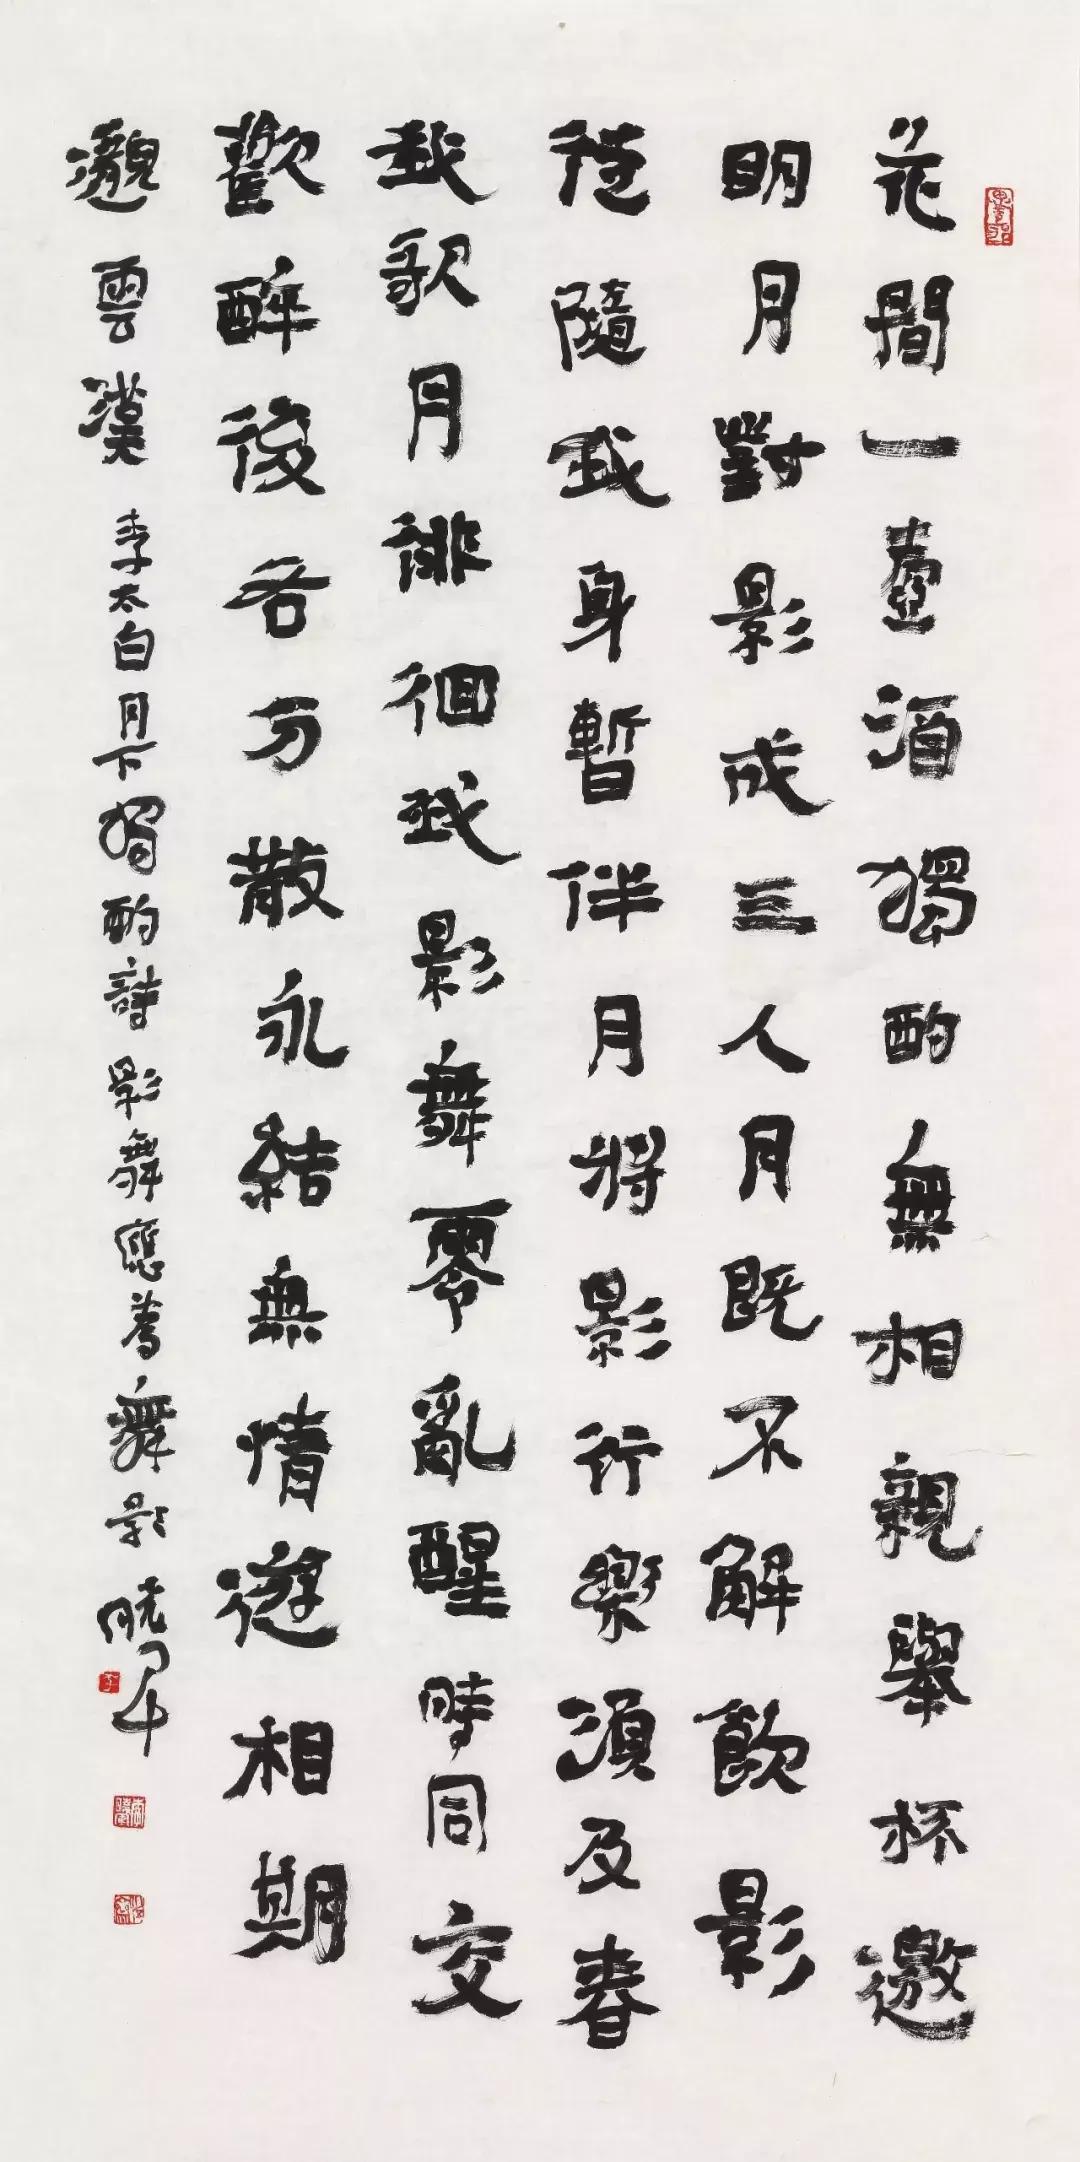 花間一壺酒獨酌無相親舉杯邀
明月對影成三人月既不解飲影
徒隨我身暫伴月將影行樂須及春
我歌月徘徊我影舞零亂醒時同交
歡醉後各分散永結無情遊相期
邈雲漢 李太白月下獨酌詩 影舞應為舞影 曉軍